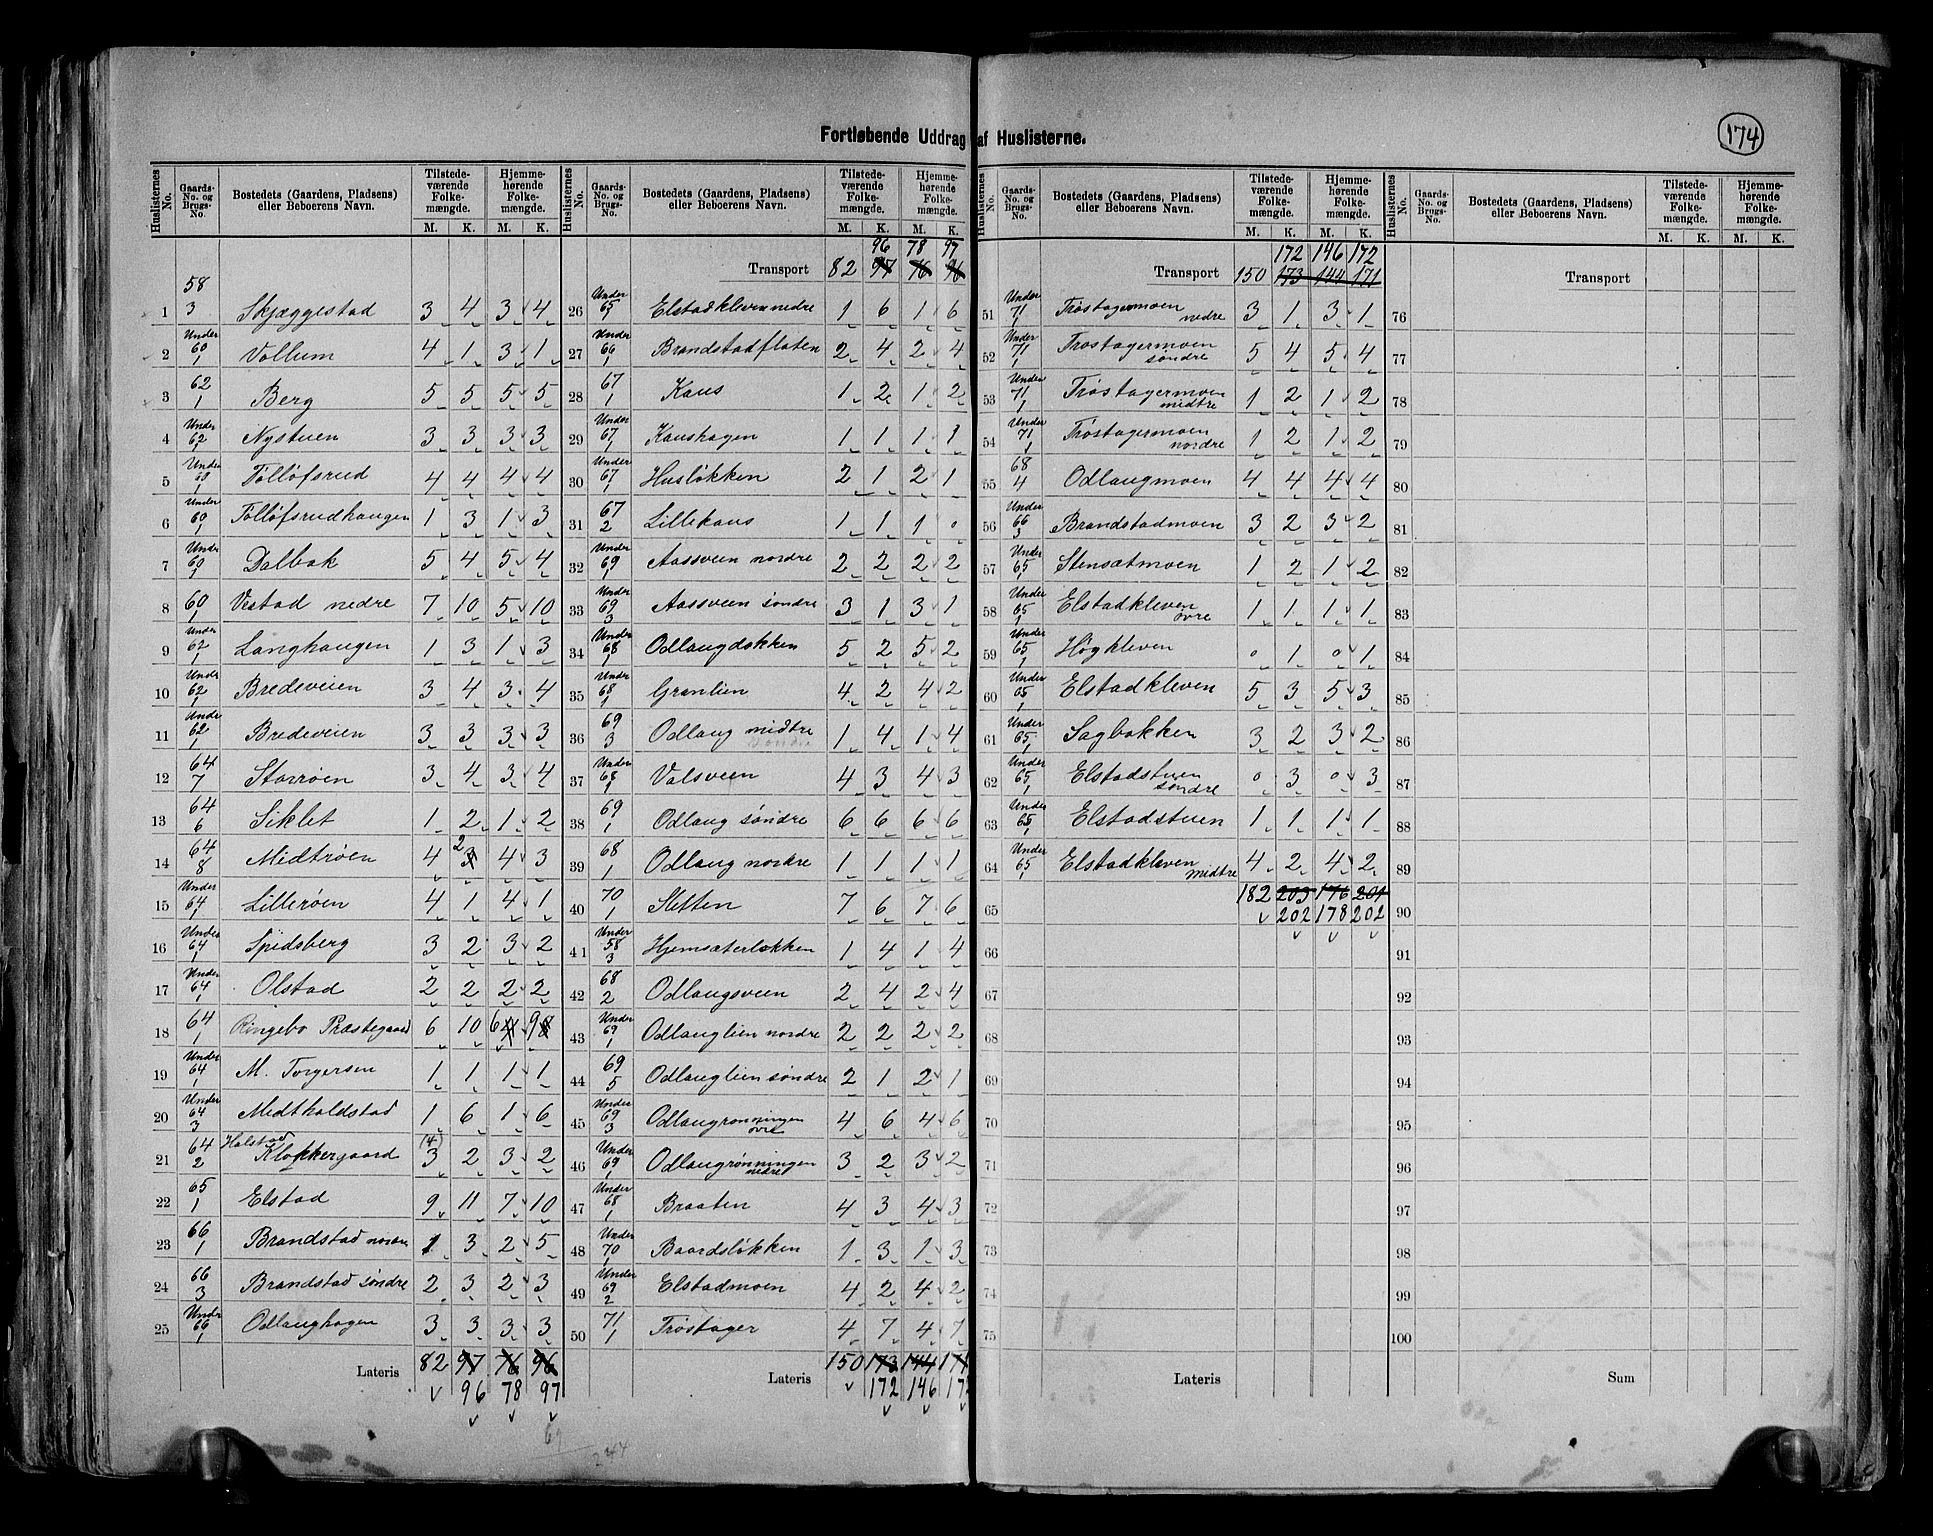 Fortløbende Uddrag af Huslisterne.
174
Huslisternes No. | Gaards-No. og Brugs-No. | Bostedets (Gaardens, Pladsens) eller Beboerens Navn. | Tilstedeværende Folkemængde. M. K. | Hjemmehørende Folkemængde. M. K.
1 58 3 Skjæggestad 3 4 3 4
2 Under 60 1 Vollum 4 1 3 1
3 62 1 Berg 5 5 5 5
4 Under 62 1 Nystuen 3 3 3 3
5 Under 1 Tolløfsrud 4 4 4 4
6 Under 60 1 Tolløfsrudhaugen 1 3 1 3
7 Under 60 1 Dalbak 5 4 5 4
8 60 1 Vestad nedre 7 10 5 10
9 Under 62 1 Langhaugen 1 3 1 3
10 Under 62 1 Bredeveien 3 4 3 4
11 Under 62 1 Bredeveien 3 3 3 3
12 64 7 Storrøen 3 4 3 4
13 64 6 Siklet 1 2 1 2
14 64 8 Midtrøen 4 2 3 4 3
15 Under 64 1 Lillerøen 4 1 4 1
16 Under 64 1 Spidsberg 3 2 3 2
17 Under 64 1 Olstad 2 2 2 2
18 64 1 Ringebo Præstegaard 6 10 6 4 9 8
19 Under 64 1 M. Torgersen 1 1 1 1
20 Under 64 3 Midtholdstad 1 6 1 6
21 64 2 Halstad Klokkergaard (4) 3 2 3 2
22 65 1 Elstad 9 11 7 10
23 66 1 Brandstad nordre 1 3 2 5
24 66 3 Brandstad søndre 2 3 2 3
25 Under 66 1 Odlaughagen 3 3 3 3
Lateris 82 97 76 96
96 78 97
244
Huslisternes No. | Gaards-No. og Brugs-No. | Bostedets (Gaardens, Pladsens) eller Beboerens Navn. | Tilstedeværende Folkemængde. M. K. | Hjemmehørende Folkemængde. M. K.
96 78 97
Transport 82 97 76 96
26 Under 65 1 Elstadkleven nedre 1 6 1 6
27 Under 66 1 Brandstadflaten 2 4 2 4
28 67 1 Kaus 1 2 1 2
29 Under 67 1 Kaushagen 1 1 1 1
30 Under 67 1 Husløkken 2 1 2 1
31 67 2 Lillekaus 1 1 1 0
32 Under 69 1 Aassveen nordre 2 2 2 2
33 Under 69 3 Aassveen søndre 3 1 3 1
34 Under 68 1 Odlaugdokken 5 2 5 2
35 Under 68 1 Granlien 4 2 4 2
36 69 3 Odlaug midtre søndre 1 4 1 4
37 Under 68 1 Valsveen 4 3 4 3
38 69 1 Odlaug søndre 6 6 6 6
39 68 1 Odlaug nordre 1 1 1 1
40 70 1 Sletten 7 6 7 6
41 Under 58 3 Hjemsæterløkken 1 4 1 4
42 68 2 Odlaugsveen 2 4 2 4
43 Under 69 1 Odlauglien nordre 2 2 2 2
44 69 5 Odlauglien søndre 2 1 2 1
45 Under 69 3 Odlaugrønningen øvre 4 6 4 6
46 Under 69 1 Odlaugrønningen nedre 3 2 3 2
47 Under 68 1 Braaten 4 3 4 3
48 Under 70 1 Baardsløkken 1 3 1 3
49 Under 69 2 Elstadmoen 4 2 4 2
50 71 1 Trøstager 4 7 4 7
Lateris 150 173 144 171
172 146 172
Huslisternes No. | Gaards-No. og Brugs-No. | Bostedets (Gaardens, Pladsens) eller Beboerens Navn. | Tilstedeværende Folkemængde. M. K. | Hjemmehørende Folkemængde. M. K.
172 146 172
Transport 150 173 144 171
51 Under 71 1 Trøstagermoen nedre 3 1 3 1
52 Under 71 1 Trøstagermoen søndre 5 4 5 4
53 Under 71 1 Trøstagermoen midtre 1 2 1 2
54 Under 71 1 Trøstagermoen nordre 1 2 1 2
55 68 4 Odlaugmoen 4 4 4 4
56 Under 66 3 Brandstadmoen 3 2 3 2
57 Under 65 1 Stensætmoen 1 2 1 2
58 Under 65 1 Elstadkleven øvre 1 1 1 1
59 Under 65 1 Høgkleven 0 1 0 1
60 Under 65 1 Elstadkleven 5 3 5 3
61 Under 65 1 Sagbakken 3 2 3 2
62 Under 65 1 Elstadstuen søndre 0 3 0 3
63 Under 65 1 Elstadstuen 1 1 1 1
64 Under 65 1 Elstadkleven midtre 4 2 4 2
65 182 203 176 201
202 178 202
66
67
68
69
70
71
72
73
74
75
Lateris
Huslisternes No. | Gaards-No. og Brugs-No. | Bostedets (Gaardens, Pladsens) eller Beboerens Navn. | Tilstedeværende Folkemængde. M. K. | Hjemmehørende Folkemængde. M. K.
Transport
76
77
78
79
80
81
82
83
84
85
86
87
88
89
90
91
92
93
94
95
96
97
98
99
100
Sum